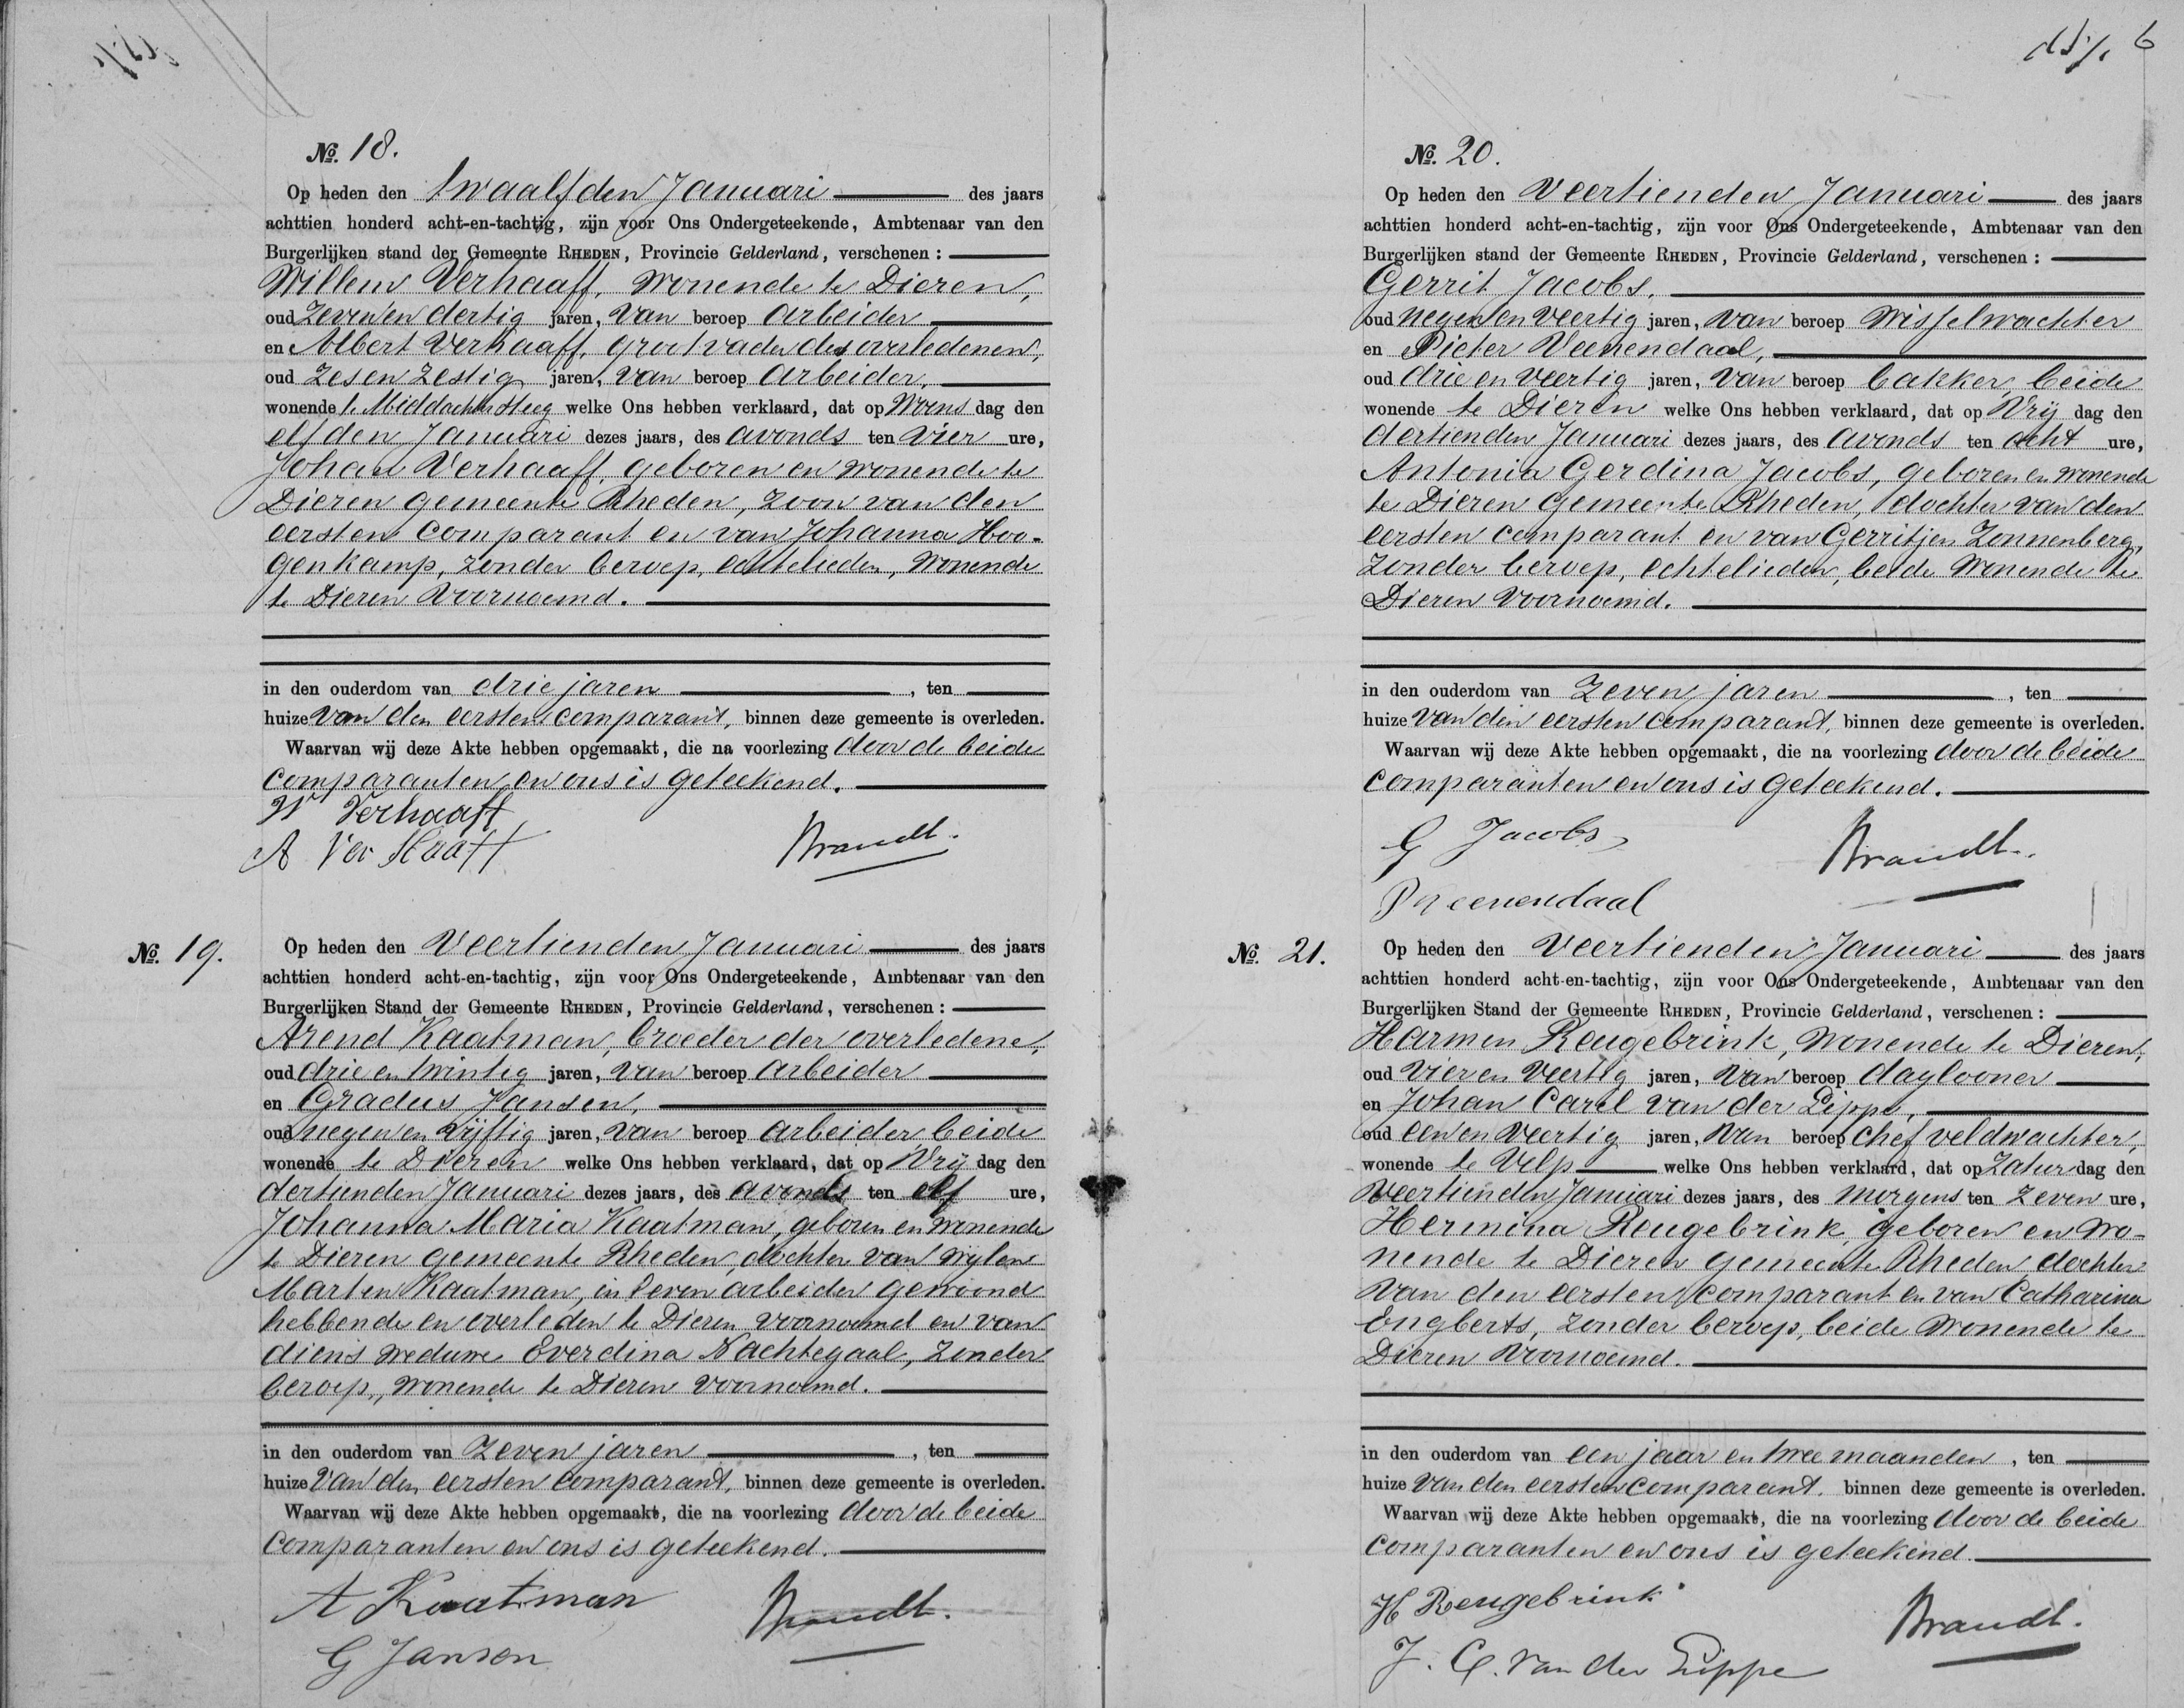 No. 18.
Op heden den twaalfden Januari des jaars
achttien honderd acht-en-tachtig, zijn voor Ons Ondergeteekende, Ambtenaar van den
Burgerlijken stand der Gemeente RHEDEN, Provincie Gelderland, verschenen:
Willem Verhaaff, wonende te Dieren,
oud Zeven en dertig jaren, van beroep Arbeider
en Albert Verhaaff, grootvader des overledenen,
oud Zes en Zestig jaren, van beroep Arbeider,
wonende te Middachtersteeg welke Ons hebben verklaard, dat op Woensdag den
elfden Januari dezes jaars, des avonds ten vier ure,
Johan Verhaaff, geboren en wonende te
Dieren gemeente Rheden, zoon van den
eersten comparant en van Johanna Hoo-
genkamp, zonder beroep, echtelieden, wonende
te Dieren voornoemd.
in den ouderdom van drie jaren, ten
huize van den eersten comparant, binnen deze gemeente is overleden.
Waarvan wij deze Akte hebben opgemaakt, die na voorlezing door de beide
comparanten en ons is geteekend.
W Verhaaff
A Ver Haaff Brandt.
No. 19.
Op heden den Veertienden Januari des jaars
achttien honderd acht-en-tachtig, zijn voor Ons Ondergeteekende, Ambtenaar van den
Burgerlijken Stand der Gemeente RHEDEN, Provincie Gelderland, verschenen:
Arend Kaatman, broeder der overledene,
oud drie en twintig jaren, van beroep Arbeider
en Gradus Jansen,
oud negen en vijftig jaren, van beroep arbeider, beide
wonende te Dieren welke Ons hebben verklaard, dat op Vrijdag den
dertienden Januari dezes jaars, des avonds ten elf ure,
Johanna Maria Kaatman, geboren en wonende
te Dieren gemeente Rheden, dochter van wijlen
Marten Kaatman, in leven arbeider gewoond
hebbende en overleden te Dieren voornoemd en van
diens weduwe Everdina Nachtegaal, zonder
beroep, wonende te Dieren voornoemd.
in den ouderdom van Zeven jaren, ten
huize van den eersten comparant, binnen deze gemeente is overleden.
Waarvan wij deze Akte hebben opgemaakt, die na voorlezing door de beide
comparanten en ons is geteekend.
A Kaatman Brandt.
G Jansen
6
No. 20.
Op heden den Veertienden Januari des jaars
achttien honderd acht-en-tachtig, zijn voor Ons Ondergeteekende, Ambtenaar van den
Burgerlijken stand der Gemeente RHEDEN, Provincie Gelderland, verschenen:
Gerrit Jacobs,
oud negen en veertig jaren, van beroep Wisselwachter
en Pieter Veenendaal,
oud drie en veertig jaren, van beroep bakker, beide
wonende te Dieren welke Ons hebben verklaard, dat op Vrijdag den
dertienden Januari dezes jaars, des avonds ten acht ure,
Antonia Gerdina Jacobs, geboren en wonende
te Dieren gemeente Rheden, dochter van den
eersten comparant en van Gerritjen Zonnenberg,
zonder beroep, echtelieden, beide wonende te
Dieren voornoemd.
in den ouderdom van Zeven jaren, ten
huize van den eersten comparant, binnen deze gemeente is overleden.
Waarvan wij deze Akte hebben opgemaakt, die na voorlezing door de beide
comparanten en ons is geteekend.
G Jacobs Brandt.
P Veenendaal
No. 21.
Op heden den Veertienden Januari des jaars
achttien honderd acht-en-tachtig, zijn voor Ons Ondergeteekende, Ambtenaar van den
Burgerlijken Stand der Gemeente RHEDEN, Provincie Gelderland, verschenen:
Harmen Reugebrink, wonende te Dieren,
oud Vier en Veertig jaren, van beroep daglooner
en Johan Carel van der Lippe,
oud een en veertig jaren, van beroep chef veldwachter,
wonende te Velp welke Ons hebben verklaard, dat op Zaturdag den
Veertienden Januari dezes jaars, des morgens ten Zeven ure,
Hermina Reugebrink, geboren en wo-
nende te Dieren gemeente Rheden, dochter
van den eersten comparant en van Catharina
Engberts, zonder beroep, beide wonende te
Dieren voornoemd.
in den ouderdom van een jaar en twee maanden, ten
huize van den eersten comparant, binnen deze gemeente is overleden.
Waarvan wij deze Akte hebben opgemaakt, die na voorlezing door de beide
comparanten en ons is geteekend.
H Reugebrink
J. C. van der Lippe Brandt.